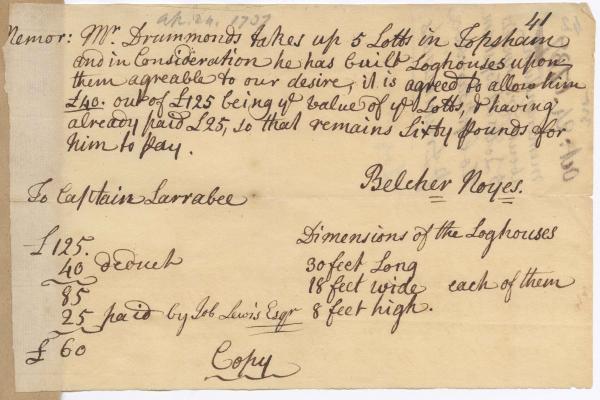 ap. 24. 1737
41
Memor: Mr. Drummonds takes up 5 Lotts in Topsham
and in Consideration he has built Loghouses upon
them agreable to our desire, it is agreed to allow him
£40. out of £125 being ye value of ye Lotts, & having
already paid £25, so that remains Sixty pounds for
him to pay.
Belcher Noyes.
To Captain Larrabee
£125.
40 deduct
85
25 paid by Job Lewis Esqr
£ 60
Dimensions of the Loghouses
30 feet Long
18 feet wide each of them
8 feet high.
Copy